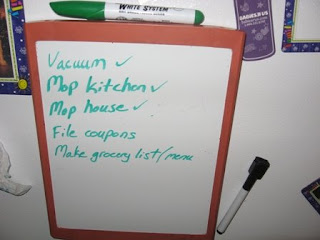 WHITE SYSTEM
Vacuum ✓
Mop kitchen ✓
Mop house ✓
File coupons
Make grocery list/menu